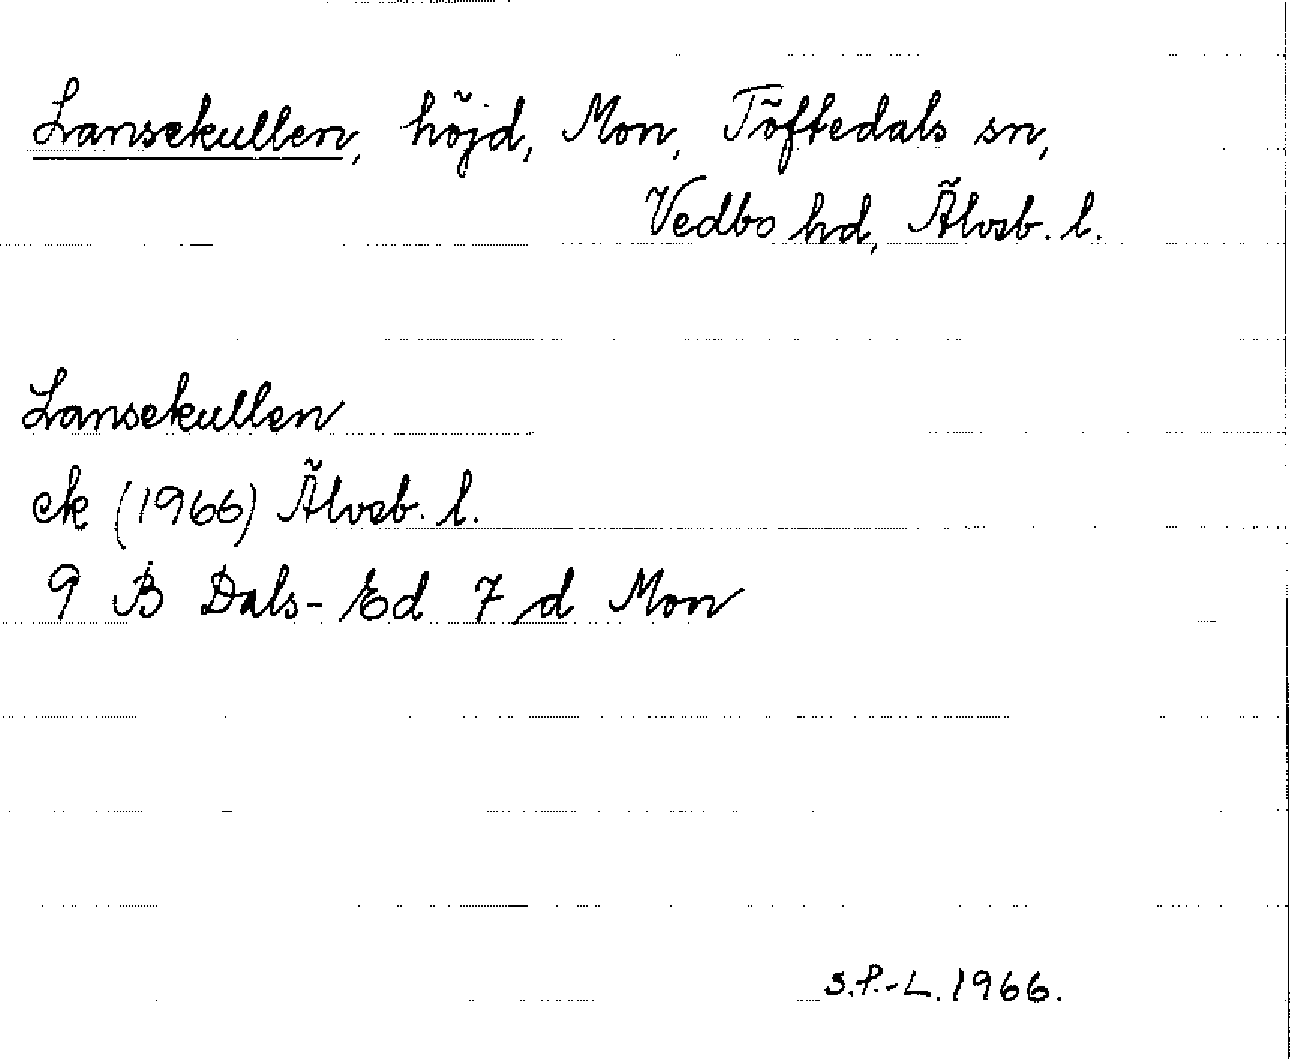 Lansekullen, höjd, Mon, Töftedals sn,
Vedbo hd, Älvsb. l.
Lansekullen
ek (1966) Älvsb. l.
9 B Dals-Ed 7 d Mon
S.P.-L. 1966.